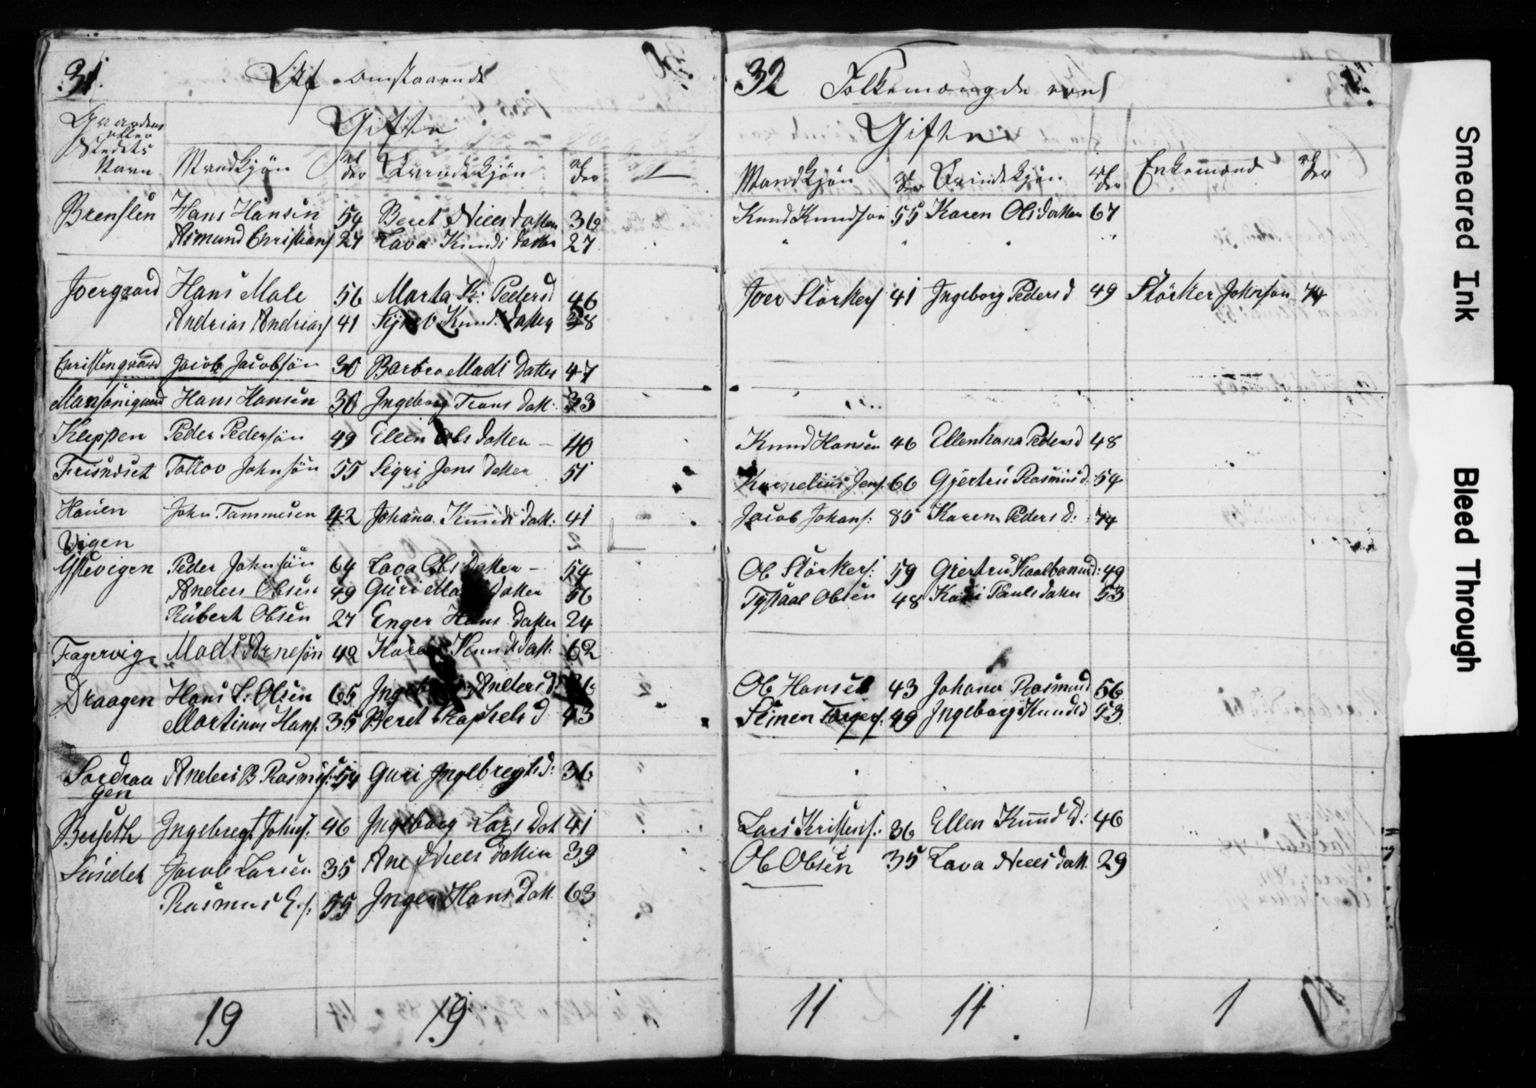 31.
Af omstaaende
Gaardens eller Stedets Navn
Gifte
Mandkjøn Alder Qvindekjøn Alder
Brenslen Hans Hansen 54 Beret Niels datter 36
Asmund Christians 27 Lava Knuds datter 27
Joergaard Hans Male 56 Marta K: Peders d 46
Andrias Andrias 41 Synev Knuds datter 38
Christengaard Jacob Jacobsøn 30 Barbro Mads datter 47
Monsønigaard Hans Hansen 38 Ingeborg Trons datt. 33
Kleppen Peder Pedersøn 49 Elien Ols datter 40
Friendset Tollov Johnsøn 55 Sigri Jens datter 51
Hauen John Tammesen 42 Johana Knuds datt. 41
Vigen
Ystevigen Peder Johnsøn 64 Lava Ols datter 54
Anders Olsen 49 Guri datter 56
Rubert Olsen 27 Enger Hans datter 24
Fagervig Mads Arnesøn 42 Kare Knuds datt. 62
Draagen Hans L: Olsen 65 Anders d.
Martinus Hans. 35 Beret Raphels d 43
Sordraagen Anders B Rasmus. 54 Guri Ingebregts d: 36
Berseth Ingebregt Johns. 46 Ingeborg Lars Dat 41
Sundet Jacob Larsen 35 Ane Niels datter 39
Rasmus E. 55 Inger Hans Datt. 63
19 19
32 Folkemængde
Gifte
Mandkjøn Alder Qvindekjøn Alder Enkemænd Alder
Knud Knudsøn 55 Karen Ols datter 67
Joer Störkers 41 Ingeborg Peders d 49 Störker Johnsøn 74
Knud Hansen 46 Ellenhana Peders d 48
Kornelius Jens. 66 Gjertru Rasmus d. 54
Jacob Johans: 85 Karen Peders d: 74
Ol Störkers: 59 Giertru 49
Tystaal Olsen 48 Kari Pauls datter 53
Ol Hansen 43 Johana Rasmus d 56
Steinen 49 Ingeborg Knuds d 53
Lars Kristens.: 36 Ellen Knud d: 46
Ol Olsen 35 Lava Niels datt. 29
11 11 1
Smeared Ink
Bleed Through